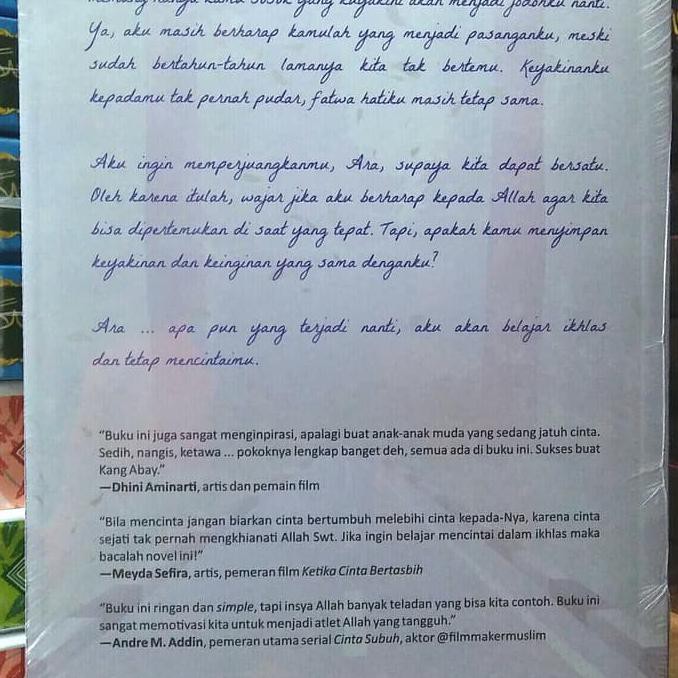 memang hanya kamu sosok yang kuyakini akan menjadi jodohku nanti.
Ya, aku masih berharap kamulah yang menjadi pasanganku, meski
sudah bertahun-tahun lamanya kita tak bertemu. Keyakinanku
kepadamu tak pernah pudar, fatwa hatiku masih tetap sama.
Aku ingin memperjuangkanmu, Ara, supaya kita dapat bersatu.
Oleh karena itulah, wajar jika aku berharap kepada Allah agar kita
bisa dipertemukan di saat yang tepat. Tapi, apakah kamu menyimpan
keyakinan dan keinginan yang sama denganku?
Ara ... apa pun yang terjadi nanti, aku akan belajar ikhlas
dan tetap mencintaimu.
“Buku ini juga sangat menginpirasi, apalagi buat anak-anak muda yang sedang jatuh cinta.
Sedih, nangis, ketawa ... pokoknya lengkap banget deh, semua ada di buku ini. Sukses buat
Kang Abay.”
—Dhini Aminarti, artis dan pemain film
“Bila mencinta jangan biarkan cinta bertumbuh melebihi cinta kepada-Nya, karena cinta
sejati tak pernah mengkhianati Allah Swt. Jika ingin belajar mencintai dalam ikhlas maka
bacalah novel ini!”
—Meyda Sefira, artis, pemeran film Ketika Cinta Bertasbih
“Buku ini ringan dan simple, tapi insya Allah banyak teladan yang bisa kita contoh. Buku ini
sangat memotivasi kita untuk menjadi atlet Allah yang tangguh.”
—Andre M. Addin, pemeran utama serial Cinta Subuh, aktor @filmmakermuslim